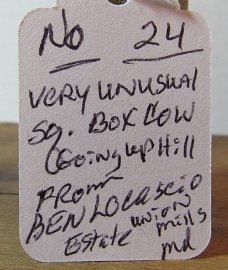 No 24
VERY UNUSUAL
SQ. BOX COW
(GOING UP Hill
FROM
BEN LOCASCIO
Estate UNION mills
md